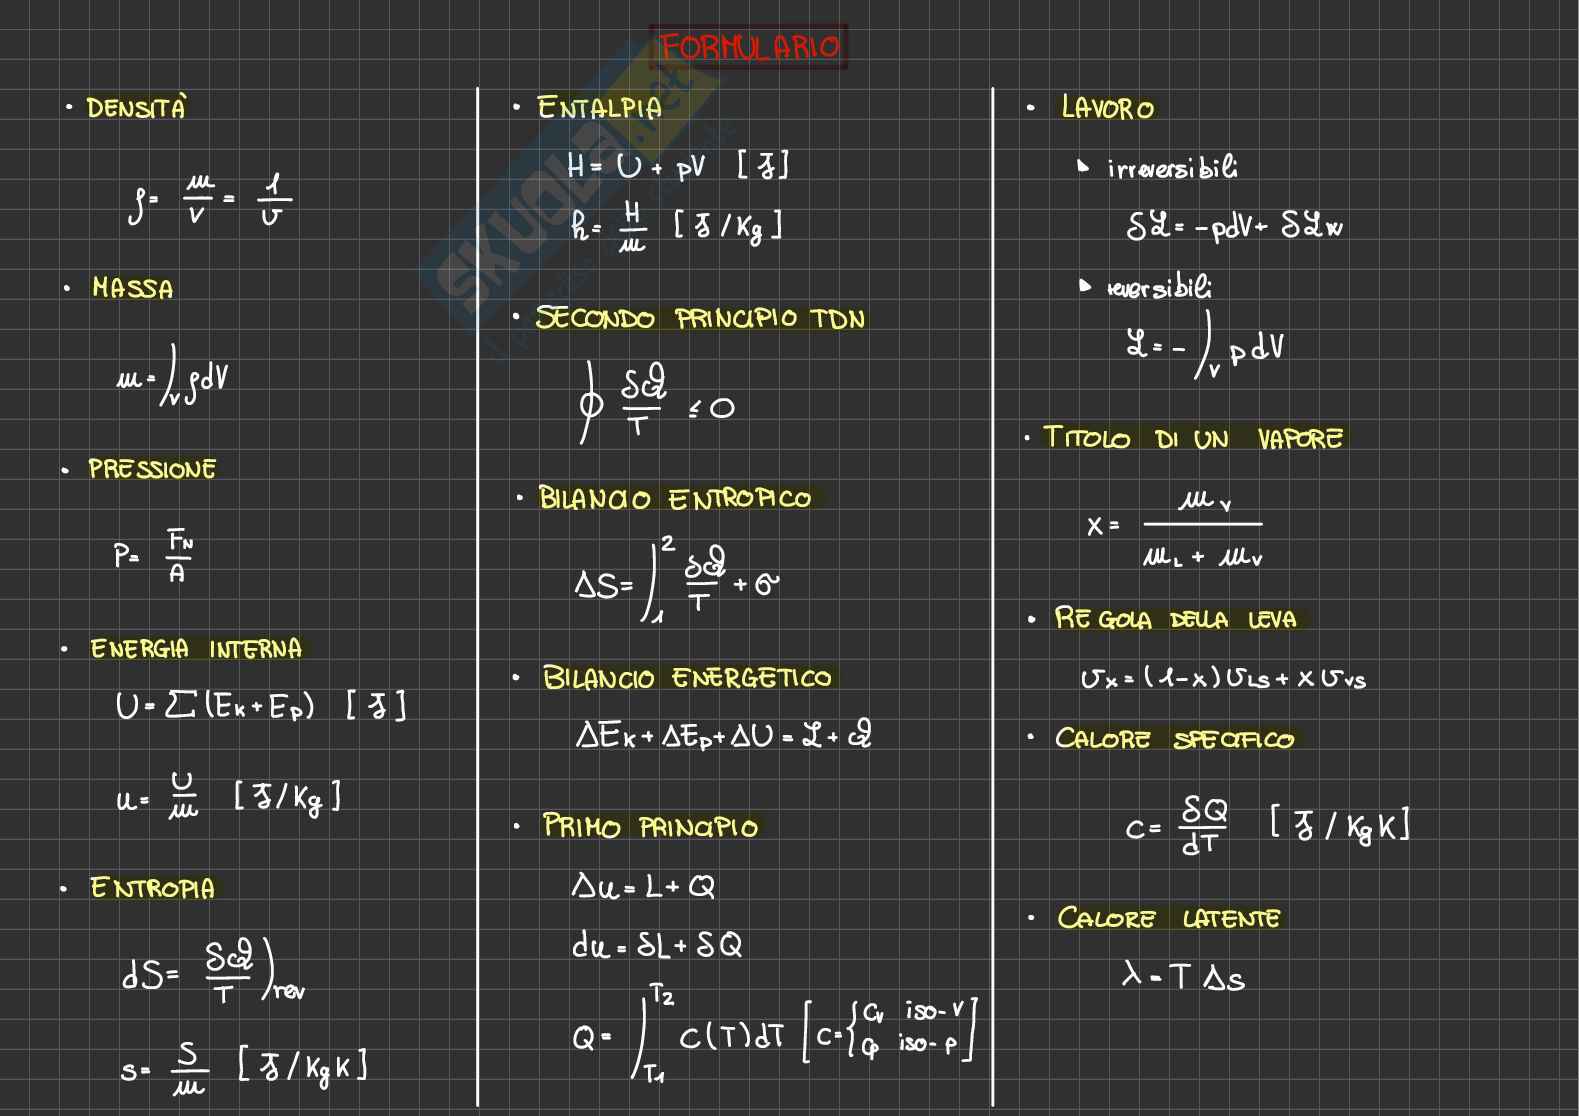 FORMULARIO
• DENSITÀ
ρ = m/V = 1/v
• MASSA
m = ∫_V ρdV
• PRESSIONE
P = F_N/A
• ENERGIA INTERNA
U = Σ(E_K + E_P) [J]
u = U/m [J/Kg]
• ENTROPIA
dS = δQ/T)_rev
s = S/m [J/KgK]
• ENTALPIA
H = U + pV [J]
h = H/m [J/Kg]
• SECONDO PRINCIPIO TDN
∮ δQ/T ≤ 0
• BILANCIO ENTROPICO
ΔS = ∫_1^2 δQ/T + σ
• BILANCIO ENERGETICO
ΔE_K + ΔE_P + ΔU = L + Q
• PRIMO PRINCIPIO
Δu = L + Q
du = δL + δQ
Q = ∫_T1^T2 C(T)dT [C = { C_v iso-V
C_p iso-p ]
• LAVORO
▸ irreversibili
δL = -pdV + δL_W
▸ reversibili
L = - ∫_V p dV
• TITOLO DI UN VAPORE
x = m_V / (m_L + m_V)
• REGOLA DELLA LEVA
v_x = (1-x) v_LS + x v_VS
• CALORE SPECIFICO
C = δQ/dT [J/KgK]
• CALORE LATENTE
λ = T Δs
SKUOLA.net